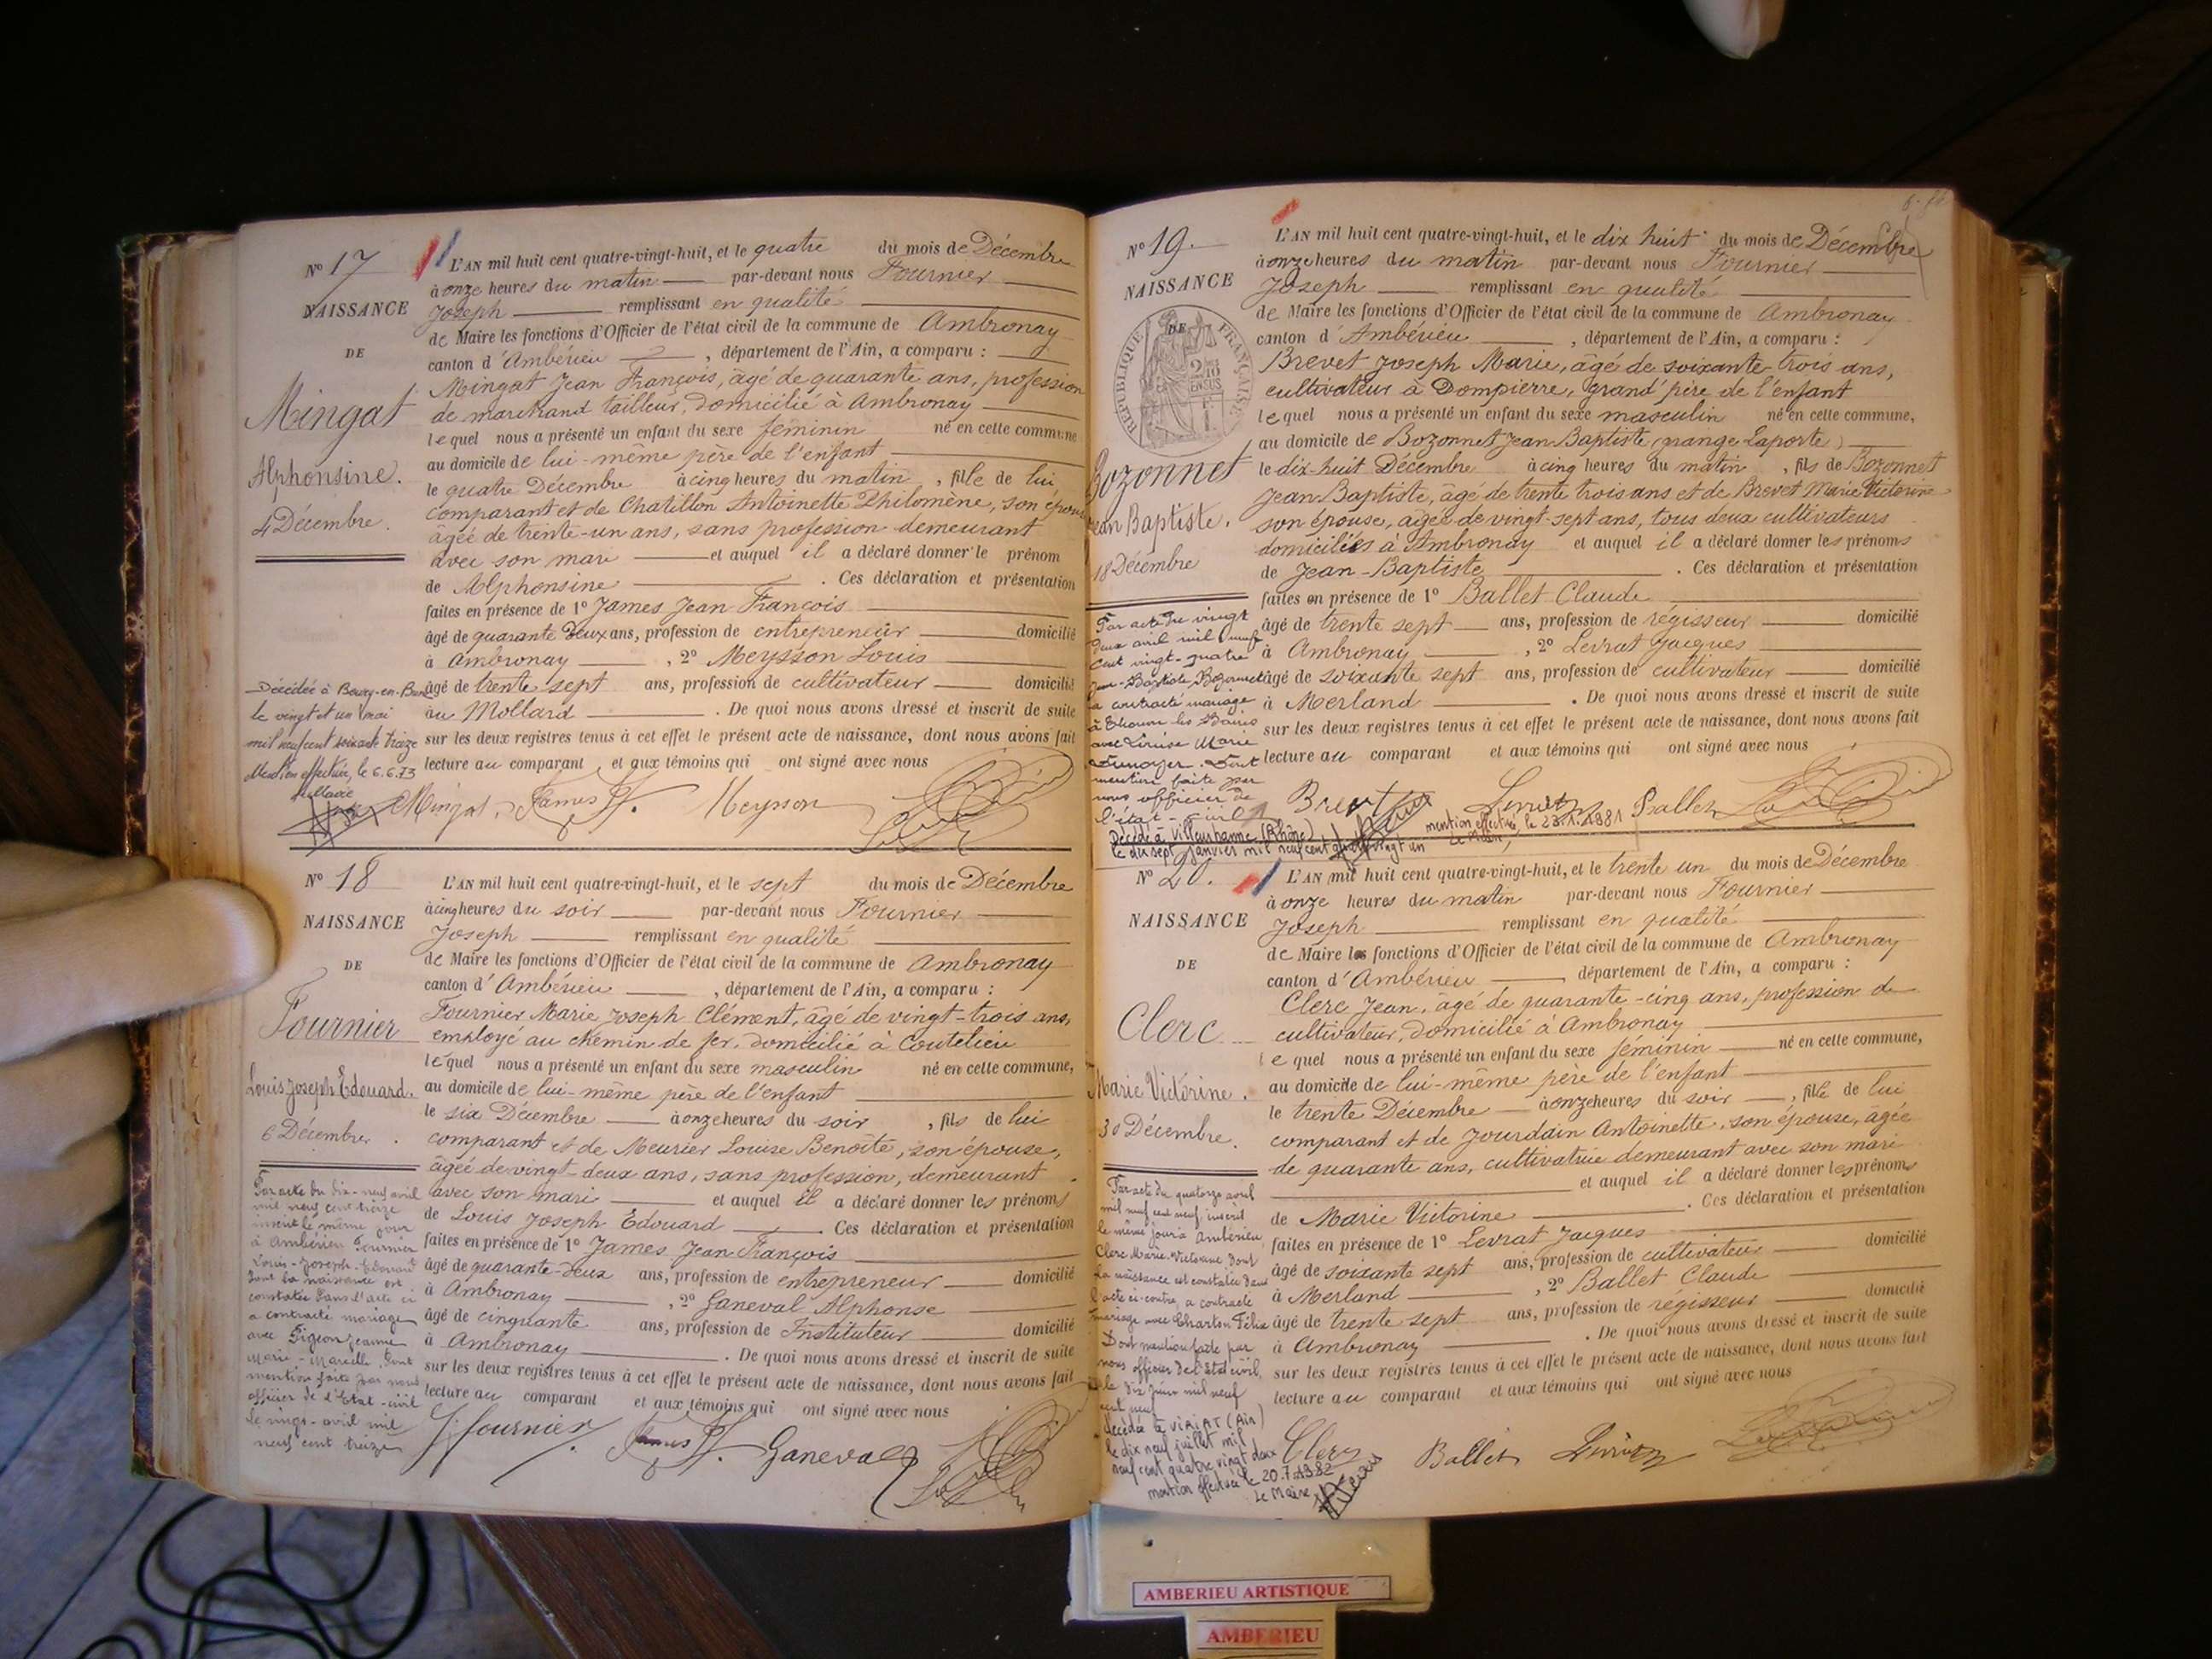 N° 17
NAISSANCE
DE
Mingat
Alphonsine.
4 Décembre.
L'AN mil huit cent quatre-vingt-huit, et le quatre du mois de Décembre
à onze heures du matin par-devant nous Fournier
Joseph remplissant en qualité
de Maire les fonctions d'Officier de l'état civil de la commune de Ambronay
canton d'Ambérieu , département de l'Ain, a comparu :
Mingat Jean François, âgé de quarante ans, profession
de marchand tailleur, domicilié à Ambronay
lequel nous a présenté un enfant du sexe féminin né en cette commune
au domicile de lui-même père de l'enfant
le quatre Décembre à cinq heures du matin , fille de lui
comparant et de Chatillon Antoinette Philomène, son épouse
âgée de trente-un ans, sans profession demeurant
avec son mari et auquel il a déclaré donner le prénom
de Alphonsine . Ces déclaration et présentation
faites en présence de 1° James Jean François
âgé de quarante deux ans, profession de entrepreneur domicilié
à Ambronay , 2° Meysson Louis
âgé de trente sept ans, profession de cultivateur domicilié
au Mollard . De quoi nous avons dressé et inscrit de suite
sur les deux registres tenus à cet effet le présent acte de naissance, dont nous avons fait
lecture au comparant et aux témoins qui ont signé avec nous
Décédée à Bourg-en-Bresse
le vingt et un mai
mil neuf cent soixante treize
Mention effectuée, le 6.6.73
Mingat. James Jf. Meysson
N° 18
NAISSANCE
DE
Fournier
Louis Joseph Edouard.
6 Décembre.
L'AN mil huit cent quatre-vingt-huit, et le sept du mois de Décembre
à cinq heures du soir par-devant nous Fournier
Joseph remplissant en qualité
de Maire les fonctions d'Officier de l'état civil de la commune de Ambronay
canton d'Ambérieu , département de l'Ain, a comparu :
Fournier Marie Joseph Clément, âgé de vingt-trois ans,
employé au chemin de fer, domicilié à Coutelieu
lequel nous a présenté un enfant du sexe masculin né en cette commune,
au domicile de lui-même père de l'enfant
le six Décembre à onze heures du soir , fils de lui
comparant et de Meurier Louise Benoîte, son épouse,
âgée de vingt-deux ans, sans profession, demeurant
avec son mari et auquel il a déclaré donner les prénoms
de Louis Joseph Edouard . Ces déclaration et présentation
faites en présence de 1° James Jean François
âgé de quarante-deux ans, profession de entrepreneur domicilié
à Ambronay , 2° Ganeval Alphonse
âgé de cinquante ans, profession de Instituteur domicilié
à Ambronay . De quoi nous avons dressé et inscrit de suite
sur les deux registres tenus à cet effet le présent acte de naissance, dont nous avons fait
lecture au comparant et aux témoins qui ont signé avec nous
Par acte du dix-neuf avril
mil neuf cent treize
inscrit le même jour
à Ambérieu Fournier
Louis-Joseph-Edouard
dont la naissance est
constatée dans l'acte ci
a contracté mariage
avec Pigeon Jeanne
Marie-Marcelle, Dont
mention faite par nous
officier de l'Etat-civil
le vingt-avril mil
neuf cent treize
J. fournier James Jf. Ganeval
N° 19.
NAISSANCE
DE
RÉPUBLIQUE FRANÇAISE
Bozonnet
Jean Baptiste.
18 Décembre
L'AN mil huit cent quatre-vingt-huit, et le dix huit du mois de Décembre
à onze heures du matin par-devant nous Fournier
Joseph remplissant en qualité
de Maire les fonctions d'Officier de l'état civil de la commune de Ambronay
canton d'Ambérieu , département de l'Ain, a comparu :
Brevet Joseph Marie, âgé de soixante-trois ans,
cultivateur à Dompierre, grand'père de l'enfant
lequel nous a présenté un enfant du sexe masculin né en cette commune,
au domicile de Bozonnet Jean Baptiste (grange Laporte)
le dix-huit Décembre à cinq heures du matin , fils de Bozonnet
Jean Baptiste, âgé de trente trois ans et de Brevet Marie Victorine
son épouse, âgée de vingt-sept ans, tous deux cultivateurs
domiciliés à Ambronay et auquel il a déclaré donner les prénoms
de Jean-Baptiste . Ces déclaration et présentation
faites en présence de 1° Ballet Claude
âgé de trente sept ans, profession de régisseur domicilié
à Ambronay , 2° Levrat Jacques
âgé de soixante sept ans, profession de cultivateur domicilié
à Merland . De quoi nous avons dressé et inscrit de suite
sur les deux registres tenus à cet effet le présent acte de naissance, dont nous avons fait
lecture au comparant et aux témoins qui ont signé avec nous
Par acte du vingt
deux avril mil neuf
cent vingt-quatre
Jean-Baptiste Bozonnet
a contracté mariage
à Thonon les Bains
avec Louise Marie
Dont
mention faite par
nous officier de
l'état-civil
Brevet Levrat Ballet
Décédé à Villeurbanne (Rhône)
le dix sept janvier mil neuf cent quatre vingt un
mention effectuée, le 23.1.1981
Le Maire,
N° 20.
NAISSANCE
DE
Clerc
Marie Victorine.
30 Décembre.
L'AN mil huit cent quatre-vingt-huit, et le trente un du mois de Décembre
à onze heures du matin par-devant nous Fournier
Joseph remplissant en qualité
de Maire les fonctions d'Officier de l'état civil de la commune de Ambronay
canton d'Ambérieu département de l'Ain, a comparu :
Clerc Jean, âgé de quarante-cinq ans, profession de
cultivateur, domicilié à Ambronay
lequel nous a présenté un enfant du sexe féminin né en cette commune,
au domicile de lui-même père de l'enfant
le trente Décembre à onze heures du soir , fille de lui
comparant et de Jourdain Antoinette, son épouse, âgée
de quarante ans, cultivatrice demeurant avec son mari
et auquel il a déclaré donner les prénoms
de Marie Victorine . Ces déclaration et présentation
faites en présence de 1° Levrat Jacques
âgé de soixante sept ans, profession de cultivateur domicilié
à Merland , 2° Ballet Claude
âgé de trente sept ans, profession de régisseur domicilié
à Ambronay . De quoi nous avons dressé et inscrit de suite
sur les deux registres tenus à cet effet le présent acte de naissance, dont nous avons fait
lecture au comparant et aux témoins qui ont signé avec nous
Par acte du quatorze avril
mil neuf cent neuf inscrit
le même jour à Ambérieu
Clerc Marie-Victorine dont
la naissance est constatée dans
l'acte ci-contre, a contracté
mariage avec Charton Félix
Dont mention faite par
nous officier de l'Etat civil,
le dix juin mil neuf
cent neuf
Décédée à VIRIAT (Ain)
le dix neuf juillet mil
neuf cent quatre vingt deux
mention effectuée le 20.7.1982
Le Maire
Clerc Ballet Levrat
AMBERIEU ARTISTIQUE
AMBERIEU